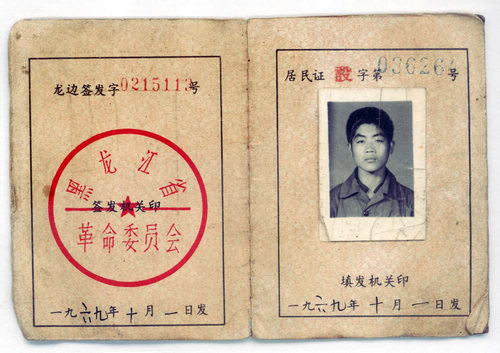 龙边签发字0215113号
黑龙江省
签发机关印
革命委员会
一九六九年十月一日发
居民证 設 字第036264号
填发机关印
一九六九年十月一日发